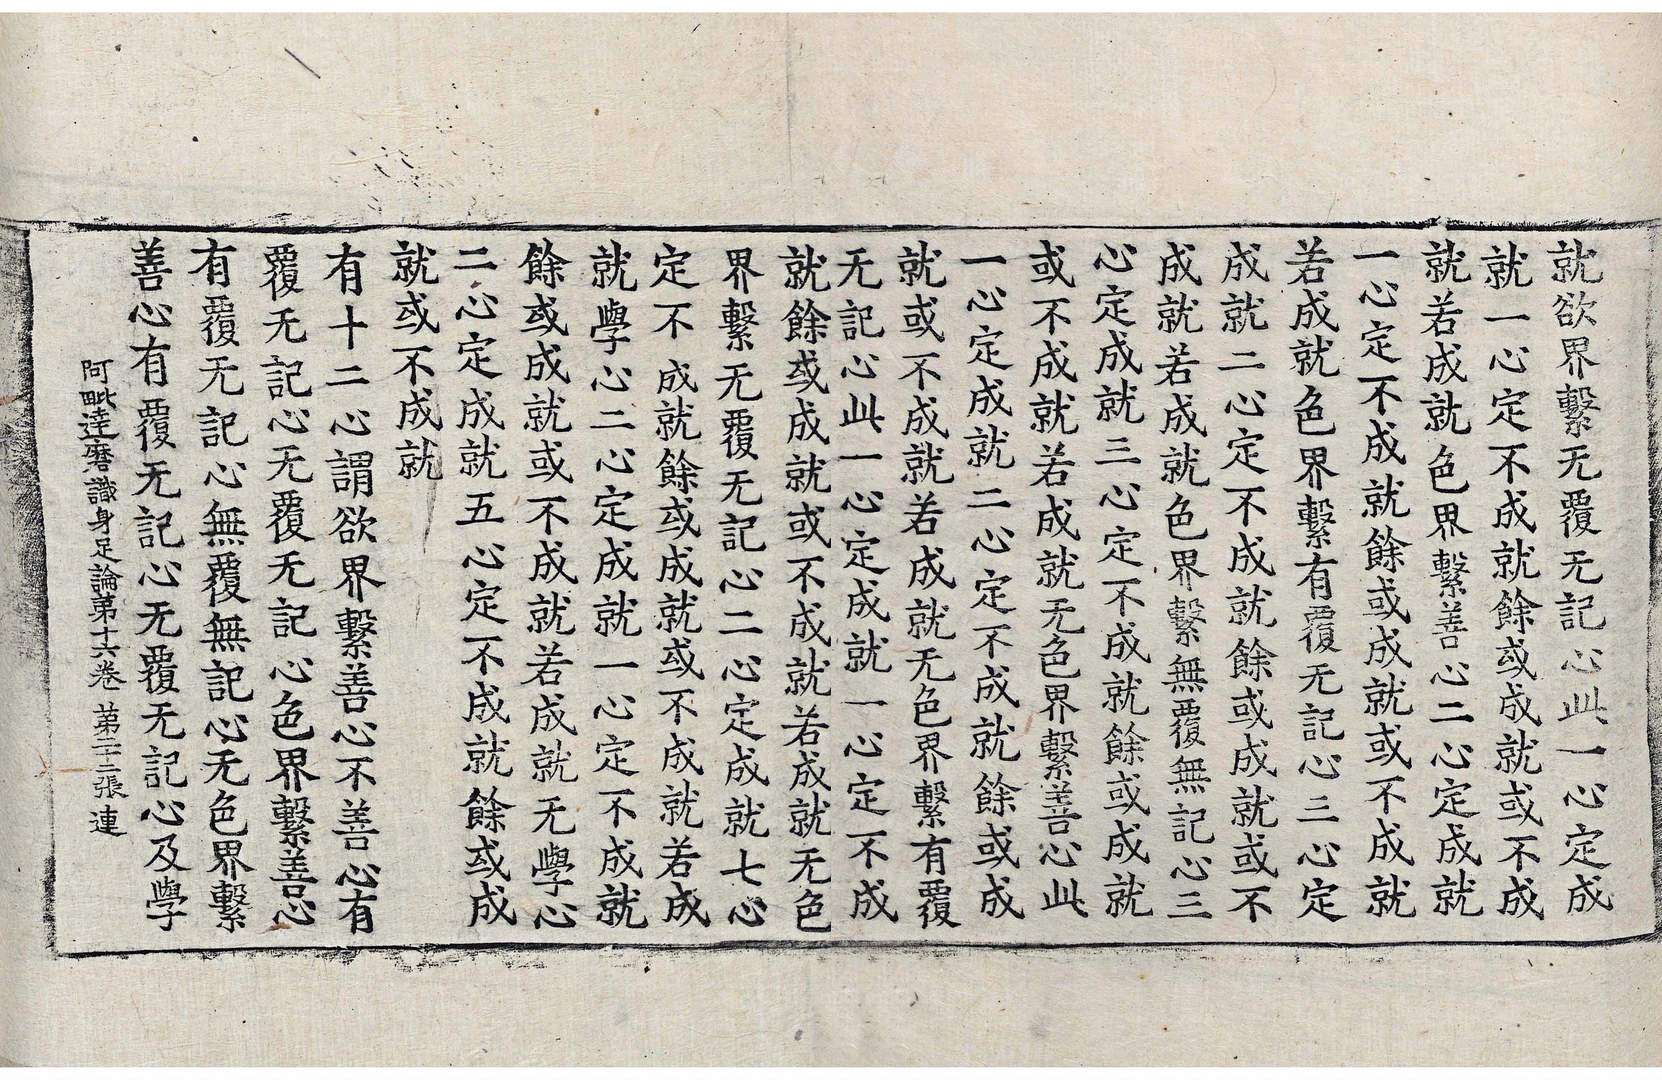 就欲界繫无覆无記心此一心定成
就一心定不成就餘或成就或不成
就若成就色界繫善心二心定成就
一心定不成就餘或成就或不成就
若成就色界繫有覆无記心三心定
成就二心定不成就餘或成就或不
成就若成就色界繫無覆無記心三
心定成就三心定不成就餘或成就
或不成就若成就无色界繫善心此
一心定成就二心定不成就餘或成
就或不成就若成就无色界繫有覆
无記心此一心定成就一心定不成
就餘或成就或不成就若成就无色
界繫无覆无記心二心定成就七心
定不成就餘或成就或不成就若成
就學心二心定成就一心定不成就
餘或成就或不成就若成就无學心
二心定成就五心定不成就餘或成
就或不成就
有十二心謂欲界繫善心不善心有
覆无記心无覆无記心色界繫善心
有覆无記心無覆無記心无色界繫
善心有覆无記心无覆无記心及學
阿毗達磨識身足論第十六卷 第二十二張 連